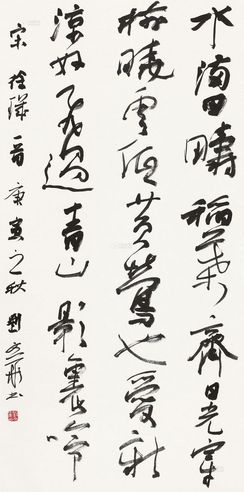 水滿田疇稻葉齊日光穿
樹曉雲低黄鶯也愛新
涼好飛過青山影裏啼
宋徐璣一首庚寅之秋劉